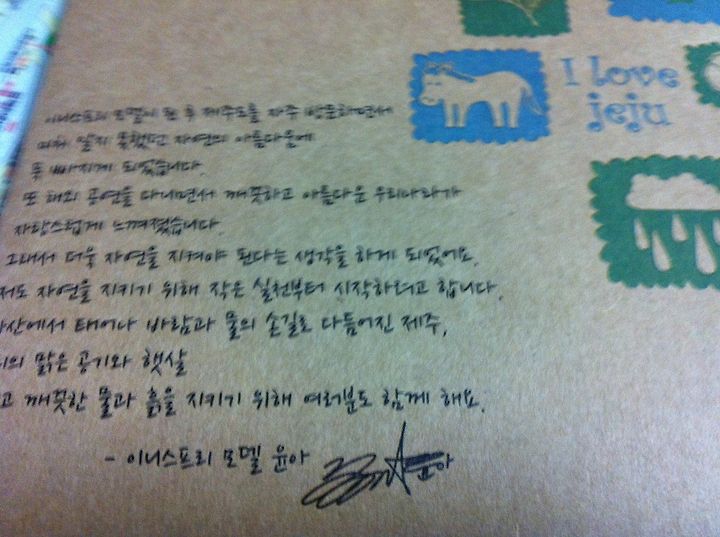 I love
jeju
이니스프리 모델이 된 후 제주도를 자주 방문하면서
미처 알지 못했던 자연의 아름다움에
푹 빠지게 되었습니다.
또 해외 공연을 다니면서 깨끗하고 아름다운 우리나라가
자랑스럽게 느껴졌습니다.
그래서 더욱 자연을 지켜야 된다는 생각을 하게 되었어요.
저도 자연을 지키기 위해 작은 실천부터 시작하려고 합니다.
산에서 태어나 바람과 물의 손길로 다듬어진 제주,
의 맑은 공기와 햇살
고 깨끗한 물과 흙을 지키기 위해 여러분도 함께 해요.
- 이니스프리 모델 윤아